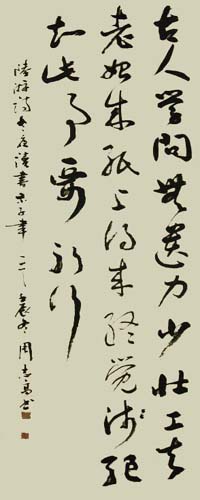 古人学问無遗力少壮工夫
老始成纸上得来终觉浅绝
知此事要躬行
陆游诗冬夜读书示子聿 壬辰冬 周志高书